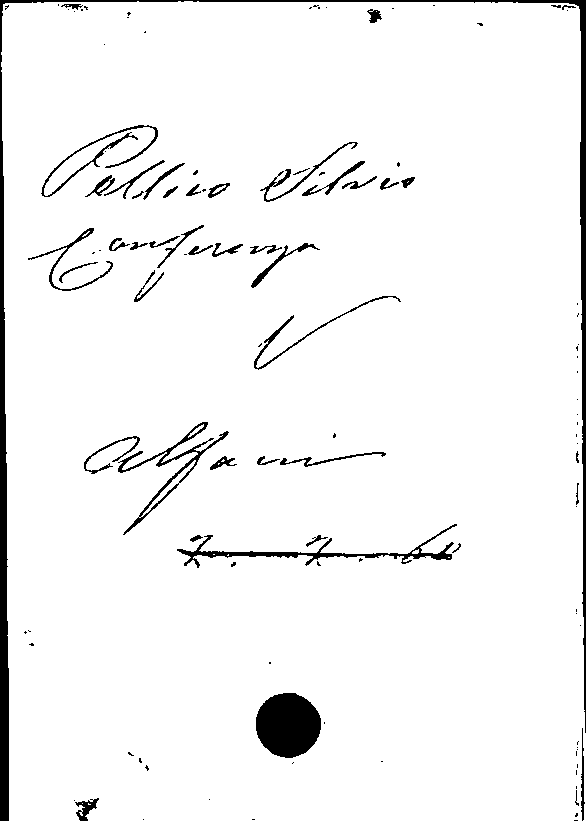 Pellico Silvio
Conferenza
V
Alfani
7. 7. 60